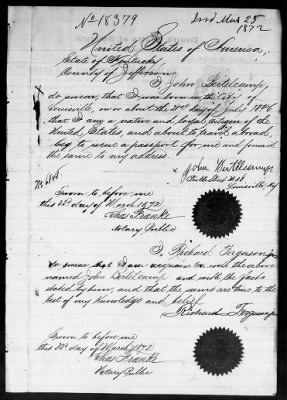 No 18379
Issd Mar 25
1872
United States of America,
State of Kentucky
County of Jefferson
I John Bertlecamp
do swear, that I was born in the City of
Louisville, on or about the 21st day of July 1846
that I am a native and loyal citizen of the
United States, and about to travel abroad,
beg to send a passport for me and forward
the same to my address
John
Louisville, Ky
Sworn to before me
this 22d day of March 1872
Chas Franke
Notary Public
I, Richard Ferguson
do swear that I am acquainted with the above
named John Bertlecamp and with the facts
stated by him, and that the same are true to the
best of my knowledge and belief.
Richard Ferguson
Sworn to before me
this 22d day of March 1872
Chas Franke
Notary Public